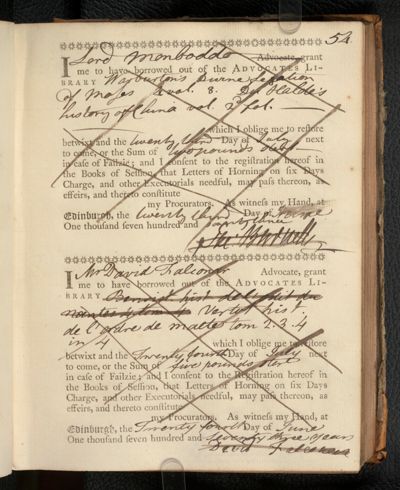 54
I Lord Monboddo Advocate, grant
me to have borrowed out of the ADVOCATES LI-
BRARY Warburtons Divine Legation
of Moses 2 vol. 8. Du Halde's
history of China vol. 2 fol.
which I oblige me to restore
betwixt and the twenty third Day of July next
to come, or the Sum of two pounds
in case of Failzie; and I consent to the registration hereof in
the Books of Session, that Letters of Horning on six Days
Charge, and other Executorials needful, may pass thereon, as
effeirs, and thereto constitute
my Procurators. As witness my Hand, at
Edinburgh, the twenty third Day of June
One thousand seven hundred and seventy three
I Mr David Dalrymple Advocate, grant
me to have borrowed out of the ADVOCATES LI-
BRARY
Vertot hist.
de l'ordre de malte tom 2. 3. 4
in 4 which I oblige me to restore
betwixt and the Twenty fourth Day of July next
to come, or the Sum of five pounds sterl
in case of Failzie; and I consent to the Registration hereof in
the Books of Session, that Letters of Horning on six Days
Charge, and other Executorials needful, may pass thereon, as
effeirs, and thereto constitute
my Procurators. As witness my Hand, at
Edinburgh, the Twenty fourth Day of June
One thousand seven hundred and Seventy three years